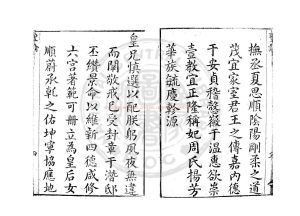 撫丞夏思順陰陽剛柔之道
茂宜家室君王之傳嘉內德
于安貞稽懿徽于温惠欲崇
壹教宜正隆稱妃周氏揚芳
華族毓慶黔源
皇兄慎選以配朕躬夙夜無違
而閫敬戒已受封章于潛邸
丕纘景命以維新四德咸修
六宮著範可冊立為皇后女
順蔚承乾之佑坤寧協應地